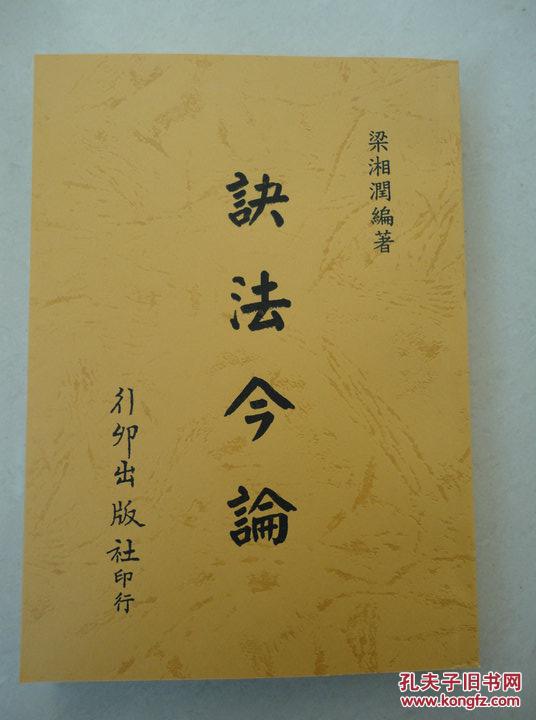 梁湘潤編著
訣法今論
行卯出版社印行
孔夫子旧书网
www.kongfz.com